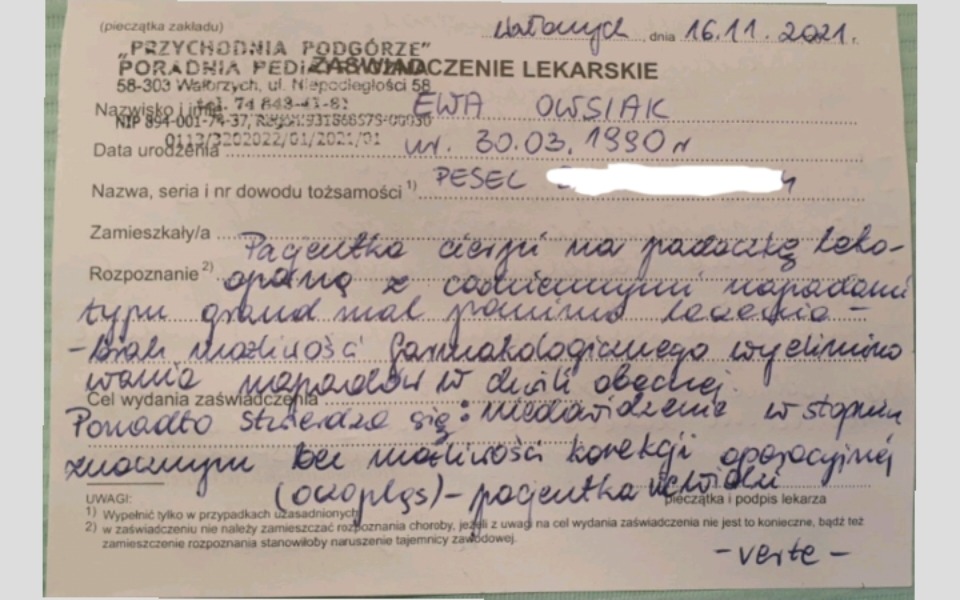 (pieczątka zakładu)
Wałbrzych, dnia 16.11.2021.
„PRZYCHODNIA PODGÓRZE”
PORADNIA PEDIATRYCZNA
ZAŚWIADCZENIE LEKARSKIE
58-303 Wałbrzych, ul. Niepodległości 58
tel. 74 843-41-81
Nazwisko i imię EWA OWSIAK
NIP 894-001-74-37,
0113/3202022/01/2021/01
Data urodzenia ur. 30.03.1990 r
Nazwa, seria i nr dowodu tożsamości 1) PESEL
Zamieszkały/a
Pacjentka cierpi na padaczkę leko-
Rozpoznanie 2) oporną z codziennymi napadami
typu grand mal pomimo leczenia -
- brak możliwości farmakologicznego wyelimino
wania napadów w chwili obecnej.
Cel wydania zaświadczenia
Ponadto stwierdza się: niedowidzenie w stopniu
znacznym bez możliwości korekcji operacyjnej
(oczopląs) - pacjentka
pieczątka i podpis lekarza
UWAGI:
1) Wypełnić tylko w przypadkach uzasadnionych
2) w zaświadczeniu nie należy zamieszczać rozpoznania choroby, jeżeli z uwagi na cel wydania zaświadczenia nie jest to konieczne, bądź też
zamieszczenie rozpoznania stanowiłoby naruszenie tajemnicy zawodowej.
- verte -